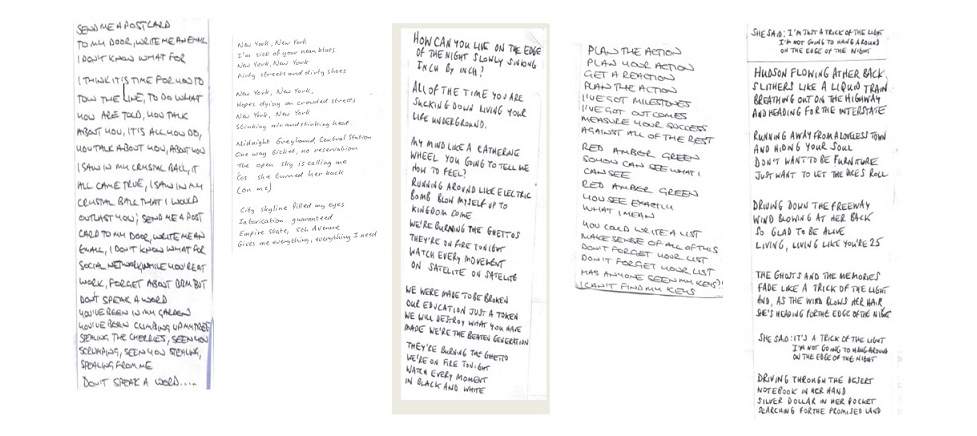 SEND ME A POSTCARD
TO MY DOOR, WRITE ME AN EMAIL
I DON'T KNOW WHAT FOR
I THINK IT'S TIME FOR YOU TO
TOW THE LINE, TO DO WHAT
YOU ARE TOLD, YOU TALK
ABOUT YOU, IT'S ALL YOU DO,
YOU TALK ABOUT YOU, ABOUT YOU
I SAW IN MY CRYSTAL BALL, IT
ALL CAME TRUE, I SAW IN MY
CRYSTAL BALL THAT I WOULD
OUTLAST YOU; SEND ME A POST
CARD TO MY DOOR, WRITE ME AN
EMAIL, I DON'T KNOW WHAT FOR
SOCIAL NETWORK, WHILE YOU'RE AT
WORK, FORGET ABOUT BUT
DON'T SPEAK A WORD
YOU'VE BEEN IN MY GARDEN
YOU'VE BEEN CLIMBING UP MY TREE
STEALING THE CHERRIES, SEEN YOU
SCRUMPING, SEEN YOU STEALING,
STEALING FROM ME
DON'T SPEAK A WORD.....
New York, New York
I'm sick of your mean blues
New York, New York
Dirty streets and dirty shoes
New York, New York,
Hopes dying on crowded streets
New York, New York
Stinking air and stinking heat.
Midnight Greyhound, Central Station
One way ticket, no reservation
The open sky is calling me
Cos she turned her back
(on me)
City skyline filled my eyes
Intoxication guaranteed
Empire State, 5th Avenue
Gives me everything, everything I need
HOW CAN YOU LIVE ON THE EDGE
OF THE NIGHT SLOWLY SINKING
INCH BY INCH?
ALL OF THE TIME YOU ARE
SUCKING DOWN LIVING YOUR
LIFE UNDERGROUND.
MY MIND LIKE A CATHERINE
WHEEL YOU GOING TO TELL ME
HOW TO FEEL?
RUNNING AROUND LIKE ELECTRIC
BOMB BLOW MYSELF UP TO
KINGDOM COME
WE'RE BURNING THE GHETTOS
THEY'RE ON FIRE TONIGHT
WATCH EVERY MOVEMENT
ON SATELITE ON SATELITE
WE WERE MADE TO BE BROKEN
OUR EDUCATION JUST A TOKEN
WE WILL DESTROY WHAT YOU HAVE
MADE WE'RE THE BEATEN GENERATION
THEY'RE BURNING THE GHETTO
WE'RE ON FIRE TONIGHT
WATCH EVERY MOMENT
IN BLACK AND WHITE
PLAN THE ACTION
PLAN YOUR ACTION
GET A REACTION
PLAN THE ACTION
I'VE GOT MILESTONES
I'VE GOT OUTCOMES
MEASURE YOUR SUCCESS
AGAINST ALL OF THE REST
RED AMBER GREEN
SO YOU CAN SEE WHAT I
CAN SEE
RED AMBER GREEN
YOU SEE EXACTLY
WHAT I MEAN
YOU COULD WRITE A LIST
MAKE SENSE OF ALL OF THIS
DON'T FORGET YOUR LIST
DON'T FORGET YOUR LIST
HAS ANYONE SEEN MY KEYS?!
I CAN'T FIND MY KEYS
SHE SAID: I'M JUST A TRICK OF THE LIGHT
I'M NOT GOING TO HANG AROUND
ON THE EDGE OF THE NIGHT
HUDSON FLOWING AT HER BACK
SLITHERS LIKE A LIQUID TRAIN
BREATHING OUT ON THE HIGHWAY
AND HEADING FOR THE INTERSTATE
RUNNING AWAY FROM A LOVELESS TOWN
AND HIDING YOUR SOUL
DON'T WANT TO BE FURNITURE
JUST WANT TO LET THE DICE ROLL
DRIVING DOWN THE FREEWAY
WIND BLOWING AT HER BACK
SO GLAD TO BE ALIVE
LIVING, LIVING LIKE YOU'RE 25
THE GHOSTS AND THE MEMORIES
FADE LIKE A TRICK OF THE LIGHT
AND, AS THE WIND BLOWS HER HAIR,
SHE'S HEADING FOR THE EDGE OF THE NIGHT
SHE SAID: IT'S A TRICK OF THE LIGHT
I'M NOT GOING TO HANG AROUND
ON THE EDGE OF THE NIGHT
DRIVING THROUGH THE DESERT
NOTEBOOK IN HER HAND
SILVER DOLLAR IN HER POCKET
SEARCHING FOR THE PROMISED LAND